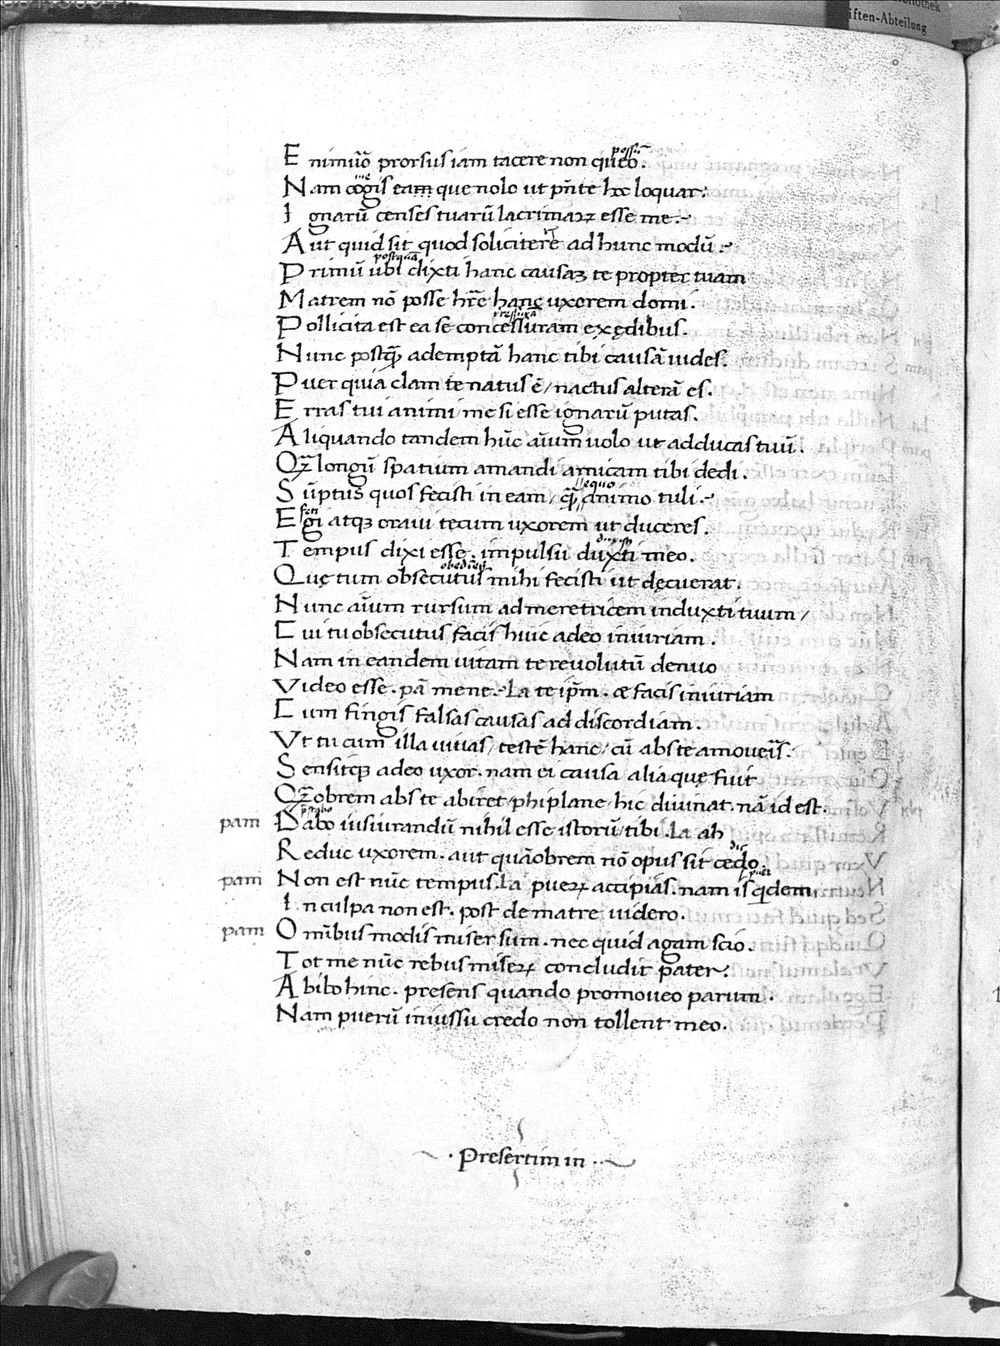 iften-Abteilung
possū
E nimuō prorsus iam tacere non queo.
N am cogis eam que nolo ut pñte hc loquar:
I gnarū censes tuarū lacrimaꝝ esse me.~
A ut quid sit quod solicitere ad hunc modū.~
postquā
P rimū ubi dixti hanc causaꝫ te propter tuam
M atrem nō posse hr̄e hanc uxorem domi.
P ollicita est ea se concessuram ex ędibus.
N unc postq̄ ademptā hanc tibi causā uides.
P uer quia clam te natus ē / nactus alterā es.
E rras tui animi me si esse ignarū putas.
A liquando tandem hūc aīum uolo ut adducas tuū.
Qꝫ longū spatium amandi amicam tibi dedi.
equo
S ūptus quos fecisti in eam / q̄ animo tuli.~
E gi atqꝫ oraui tecum uxorem ut duceres.
T empus dixi esse. impulsu duxti meo.
Q ue tum obsecutus mihi fecisti ut dęcuerat.
N unc aīum rursum ad meretricem induxti tuum /
C ui tu obsecutus facis huic adeo iniuriam.
N am in eandem uitam te reuolutū denuo
V ideo esse. pā mene.~ La te ip̄m. & facis iniuriam
C um fingis falsas causas ad discordiam.
V t tu cum illa uiuas / testē hanc / cū abs te amoueris̄.
S ensitqꝫ adeo uxor. nam ei causa alia quę fuit
Qꝫobrem abs te abiret / phi plane. hic diuinat. nā id est.
pam D abo iusiurandū nihil esse istorū tibi. La ah
dic
R educ uxorem. aut quāobrem nō opus sit cedo.
pam N on est nūc tempus. La pueꝝ accipias. nam is q̄dem
I n culpa non est. post de matre uidero.
pam O mībus modis miser sum. nec quid agam scio.
T ot me nūc rebus miseꝝ concludit pater.
A bibo hinc. presens quando promoueo parum.
N am puerū iniussu credo non tollent meo.
~ . Presertim in . ~